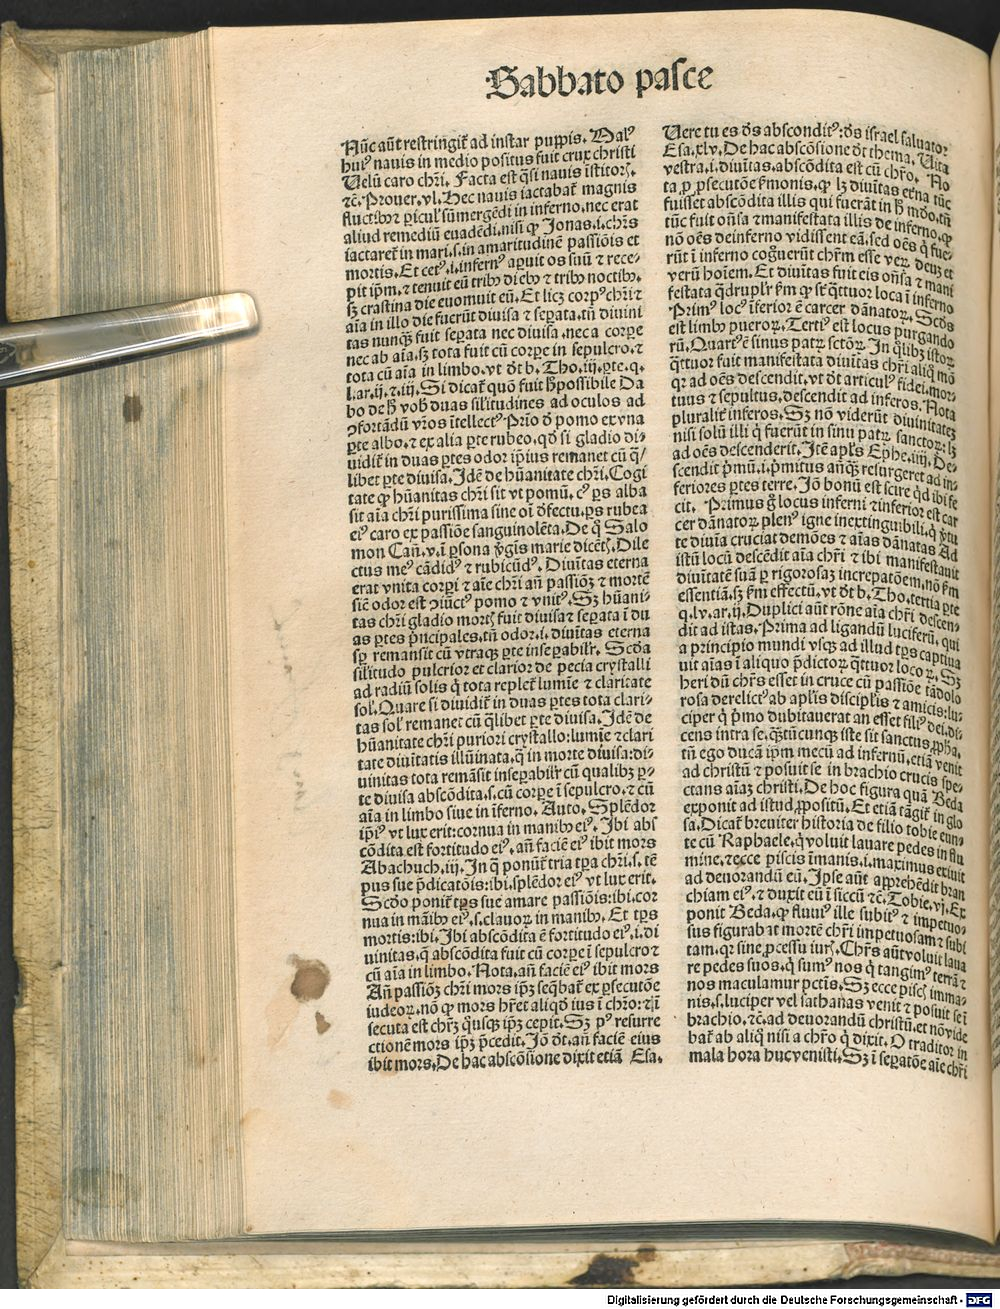 Sabbato pasce
Nūc aūt restringit̄ ad instar puppis. Malꝰ
huiꝰ nauis in medio positus fuit crux christi
Velū caro chr̄i. Facta est q̄si nauis īstitorꝭ.
⁊c̄. Prouer. vl. Hec nauis iactabat̄ magnis
fluctibꝰ ⁊ pericul̕ sūmergēdi in inferno, nec erat
aliud remediū euadēdi, nisi ꝙ Jonas .i. chr̄s
iactaret̄ in mari .s. in amaritudinē passiōis et
mortis. Et cetꝰ .i. infernꝰ aꝑuit os suū ⁊ rece⸗
pit ip̄m, ⁊ tenuit eū tribꝰ diebꝰ ⁊ tribꝰ noctibꝰ.
sꝫ crastina die euomuit eū. Et licꝫ corpꝰ chr̄i ⁊
aīa in illo die fuerūt diuisa ⁊ seꝑata, tn̄ diuini
tas nunqꝫ fuit seꝑata nec diuisa, nec a corꝑe
nec ab aīa, sꝫ tota fuit cū corꝑe in sepulcro, ⁊
tota cū aīa in limbo. vt d̄t b. Tho. iij. ꝑte. q.
l. ar. ij. ⁊ iij. Si dicat̄ quō fuit h̄ possibile Da
bo de h̄ vob̕ duas sil̕itudines ad oculos ad
ꝯfortādū vr̄os ītellectꝰ Prīo d̄ pomo ex vna
ꝑte albo, ⁊ ex alia ꝑte rubeo, qd̕ si gladio di⸗
uidit̄ in duas ꝑtes odor ip̄ius remanet cū q̄⸗
libet ꝑte diuisa. Idē de hūanitate chr̄i. Cogi
tate ꝙ hūanitas chr̄i sit vt pomū. cꝰ ꝑs alba
sit aīa chr̄i purissima sine oī d̕fectu, ꝑs rubea
eiꝰ caro ex passiōe sanguinolēta. De q̊ Salo
mon Cañ. v. ī ꝑsona ꝟgīs marie dicētꝭ. Dile
ctus meꝰ cādidꝰ ⁊ rubicūdꝰ. Diuītas eterna
erat vnita corpi ⁊ aīe chr̄i añ passiōꝫ ⁊ mortē
siē odor est ꝯiūctꝰ pomo ⁊ vnitꝰ. Sꝫ hūani⸗
tas chr̄i gladio mortꝭ fuit diuisa ⁊ seꝑata ī du
as ꝑtes p̄ncipales, tn̄ odor .i. diuītas eterna
sꝑ remansit cū vtraqꝫ ꝑte inseꝑabil̕r. Scd̕a
sil̕itudo pulcrior et clarior de pecia crystalli
ad radiū solis q̄ tota replet̄ lumīe ⁊ claritate
sol̕. Quare si diuidit̄ in duas ꝑtes tota clari⸗
tas sol̕ remanet cū q̄libet ꝑte diuisa. Idē de
hūanitate chr̄i puriori crystallo: lumīe ⁊ clari
tate diuītatis illūinata, q̄ in morte diuisa: di⸗
uinitas tota remāsit inseꝑabil̕r cū qualibꝫ ꝑ⸗
te diuisa abscōdita .s. cū corꝑe ī sepulcro, ⁊ cū
aīa in limbo siue in īferno. Auto. Splēdor
ip̄iꝰ vt lux erit: cornua in manibꝰ eiꝰ. Ibi abs
cōdita est fortitudo eiꝰ, añ faciē eiꝰ ibit mors
Abachuch. iij. In q̄ ponūt̄ tria tꝑa chr̄i .s. tē
pus sue p̄dicatōis: ibi. splēdor eiꝰ vt lux erit.
Scd̕o ponit̄ tꝑs sue amare passiōis: ibi. cor
nua in māibꝰ eiꝰ .s. clauoꝝ in manibꝰ. Et tꝑs
mortis: ibi. Ibi abscōdita ē fortitudo eiꝰ .i. di
uinitas, q̄ abscōdita fuit cū corꝑe ī sepulcro ⁊
cū aīa in limbo. Nota, añ faciē eiꝰ ibit mors
Añ passiōꝫ chr̄i mors ip̄ꝫ seq̄bat̄ ex ꝑsecutōe
iudeoꝝ, nō ꝙ mors hr̄et aliqd̕ ius ī chr̄o: ⁊ iī
secuta est chr̄ꝫ q̊usqꝫ ip̄ꝫ cepit. Sꝫ pꝰ resurre
ctionē mors ip̄ꝫ p̄cedit. Iō d̄t, añ faciē eius
ibit mors. De hac abscōsione dixit etiā Esa.
Vere tu es d̕s absconditꝰ: d̕s israel saluator
Esa. xlv. De hac abscōsione d̄t thema. Vita
vestra .i. diuītas, abscōdita est cū chr̄o. No
ta ꝓ ꝓsecutōe ẜmonis, ꝙ lꝫ diuītas et̄na tūc
fuisset abscōdita illis qui fuerāt in h̄ mūdo, tn̄
tūc fuit oñsa ⁊ manifestata illis de inferno, ꝙ
nō oēs de inferno vidissent eā, sed oēs q̄ fue⸗
rūt ī inferno cognuerūt chr̄m esse verꝫ deuꝫ et
verū hoīem. Et diuītas fuit eis oñsa ⁊ mani
festata q̄drupl̕r ẜm ꝙ sūt q̄ttuor loca ī inferno
Primꝰ locꝰ īferior ē carcer dānatoꝝ. Scd̕s
est limbꝰ pueroꝝ. Tertiꝰ est locus purgando
rū. Quartꝰ ē sinus patꝝ sctōꝝ. In q̄libꝫ istoꝝ
q̄ttuor fuit manifestata diuītas chr̄i aliq̊ mō
qꝛ ad oēs descendit, vt d̄t articulꝰ fidei, mor⸗
tuus ⁊ sepultus, descendit ad inferos. Nota
pluralit̄ inferos. Sꝫ nō viderūt diuinitateꝫ
nisi solū illi q̄ fuerūt in sinu patꝝ sanctoꝝ: lꝫ
ad oēs descenderit. Itē apl̕s Ephe. iiij. De⸗
scendit pͥmū .i. pͥmitus añqꝫ resurgeret ad in⸗
feriores ꝑtes terre. Iō bonū est scire qd̕ ibi fe
cit. Primus g̊ locus inferni ⁊ inferior est car
cer dānatoꝝ plenꝰ igne inextinguibili, q̄ ꝟtu
te diuīa cruciat demōes ⁊ aīas dānatas Ad
istū locū descēdit aīa chr̄i ⁊ ibi manifestauit
diuītatē suā ꝑ rigorosaꝫ increpatōem, nō ẜm
essentiā, sꝫ ẜm effectū, vt d̄t b. Tho. tertia ꝑte
q. lv. ar. ij. Duplici aūt rōne aīa chr̄i descen⸗
dit ad istas. Prima ad ligandū luciferū, qui
a principio mundi vsqꝫ ad illud tꝑs captiua
uit aīas ī aliquo p̄dictoꝝ q̄ttuor locoꝝ. Sꝫ
heri dū chr̄s esset in cruce cū passiōe tā dolo
rosa derelictꝰ ab apl̕is discipl̕is ⁊ amicis: lu⸗
ciper q̄ pͥmo dubitauerat an esset filiꝰ dei, di⸗
cens intra se, q̄stūcunqꝫ iste sit sanctus ꝓph̕a,
tn̄ ego ducā ip̄m mecū ad infernū, etiā venit
ad christū ⁊ posuit se in brachio crucis spe⸗
ctans aīaꝫ christi. De hoc figura quā Beda
exponit ad istud ꝓpositū. Et etiā tāgit̄ in glo
sa. Dicat̄ breuiter historia de filio tobie eun⸗
te cū Raphaele, q̄ voluit lauare pedes in flu
mine, ⁊ ecce piscis īmanis .i. maximus exiuit
ad deuorandū eū. Ip̄e aūt apprehēdit bran
chiam eiꝰ, ⁊ duxit eū ī siccū ⁊c̄. Tobie. vj. Ex
ponit Beda, ꝙ fluuiꝰ ille subitꝰ ⁊ impetuo⸗
sus figurabat mortē chr̄i impetuosam ⁊ subi
tam, qꝛ sine ꝓcessu iurꝭ. Chr̄s aūt voluit laua
re pedes suos, q̄ sumꝰ nos q̄ tangimꝰ terrā ⁊
nos maculamur pctīs. Sꝫ ecce piscꝭ imma⸗
nis .s. luciper vel sathanas venit ⁊ posuit se ī
brachio, ⁊c̄. ad deuorandū christū, et nō vide
bat̄ ab aliq̊ nisi a chr̄o q̄ dixit. O traditor in
mala hora huc venisti. Sꝫ ī seꝑatōe aīe chr̄i
Digitalisierung gefördert durch die Deutsche Forschungsgemeinschaft - DFG